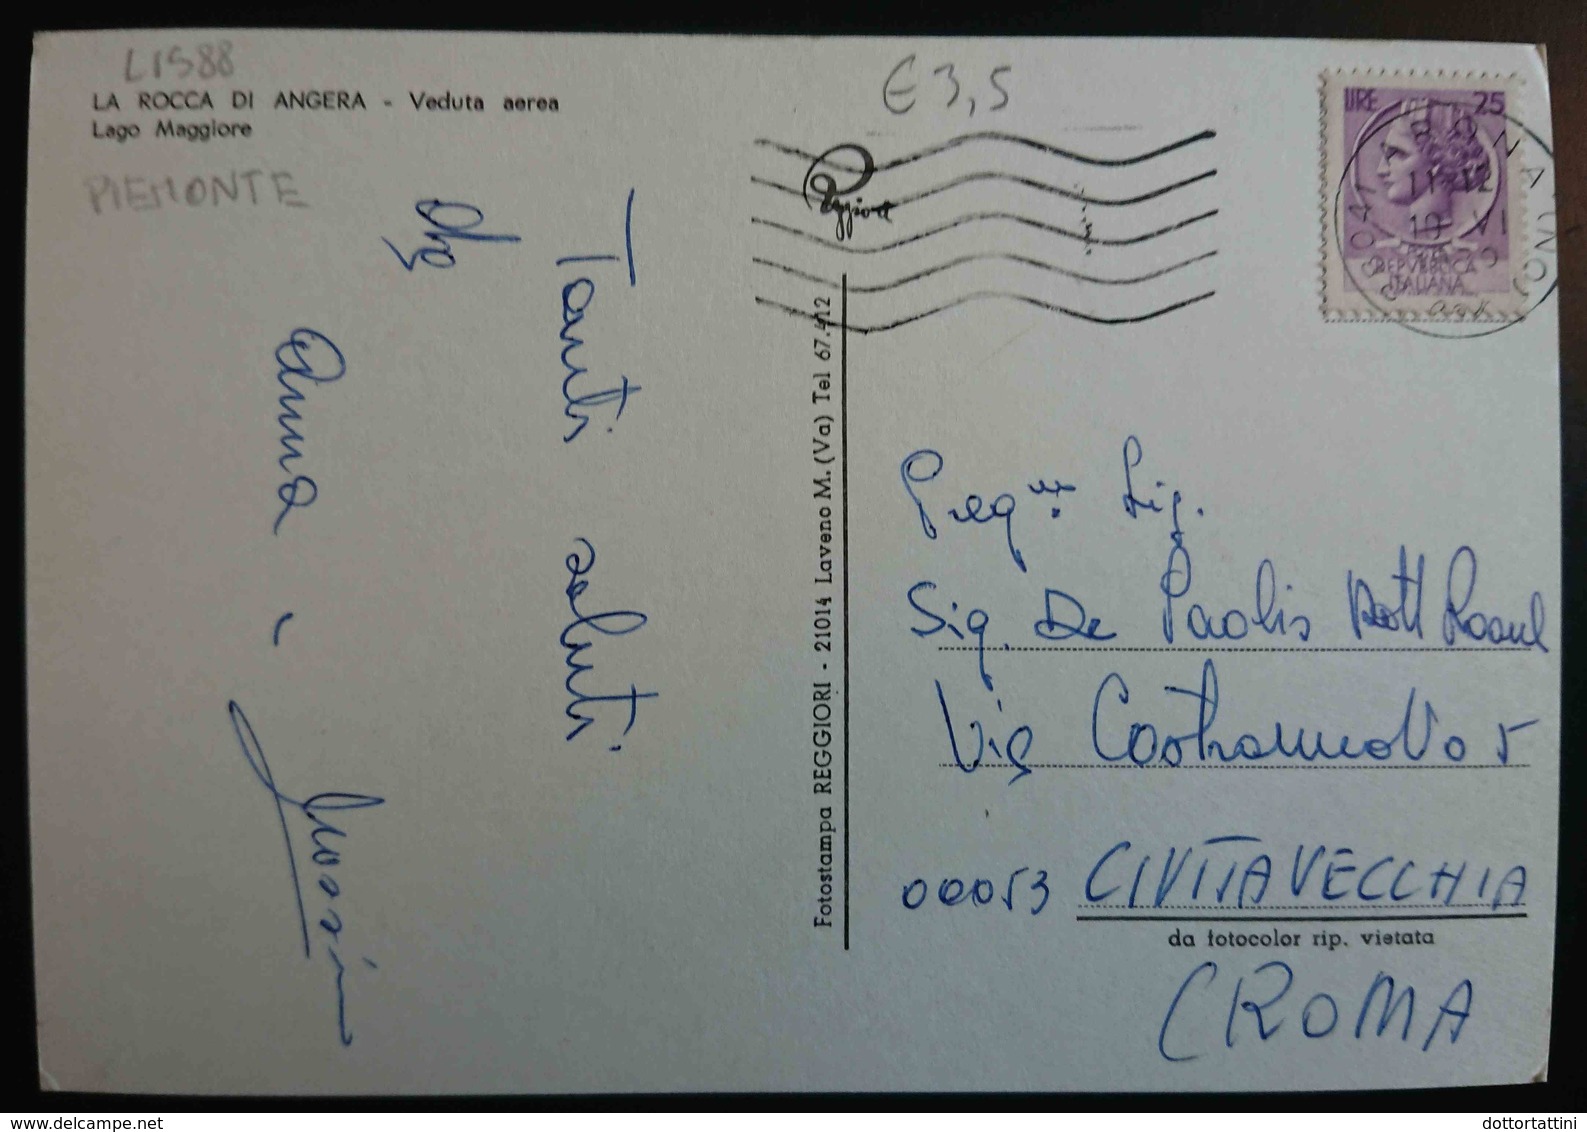 L1588
LA ROCCA DI ANGERA - Veduta aerea
Lago Maggiore
PIEMONTE
€ 3,5
Reggiori
LIRE 25
ARONA
28041
NO
11-12
REPVBBLICA
ITALIANA
Tanti saluti
Anna
Fotostampa REGGIORI - 21014 Laveno M. (Va) Tel 67.412
Sig.
Sig. De Paolis Dott Raoul
Via 5
00053 CIVITAVECCHIA
da fotocolor rip. vietata
(ROMA
dottortattini